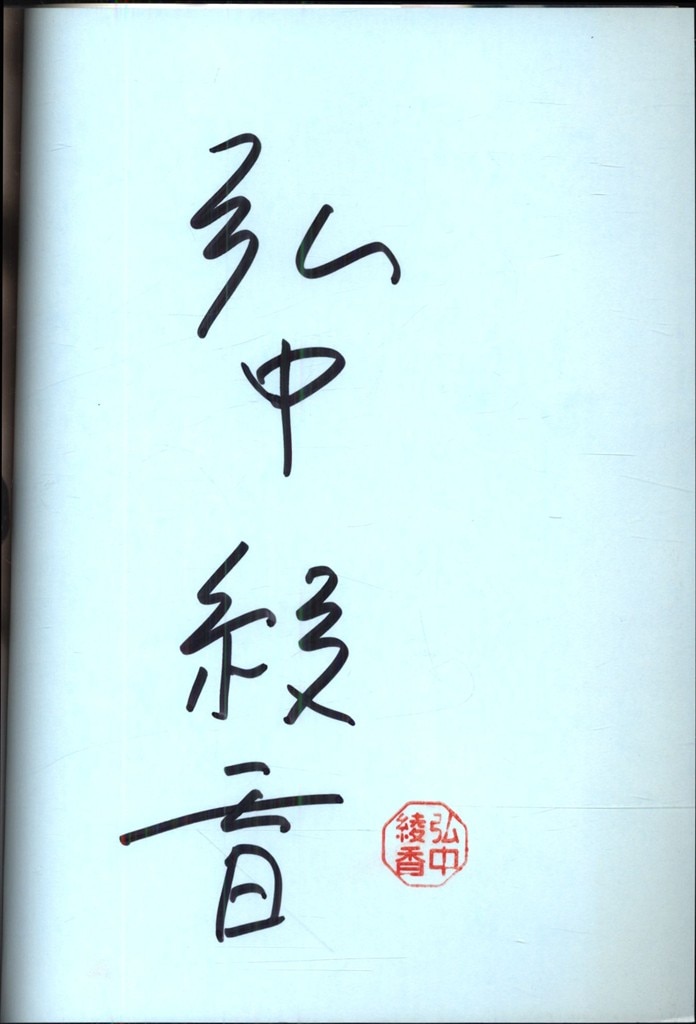 弘中綾香
弘中
綾香